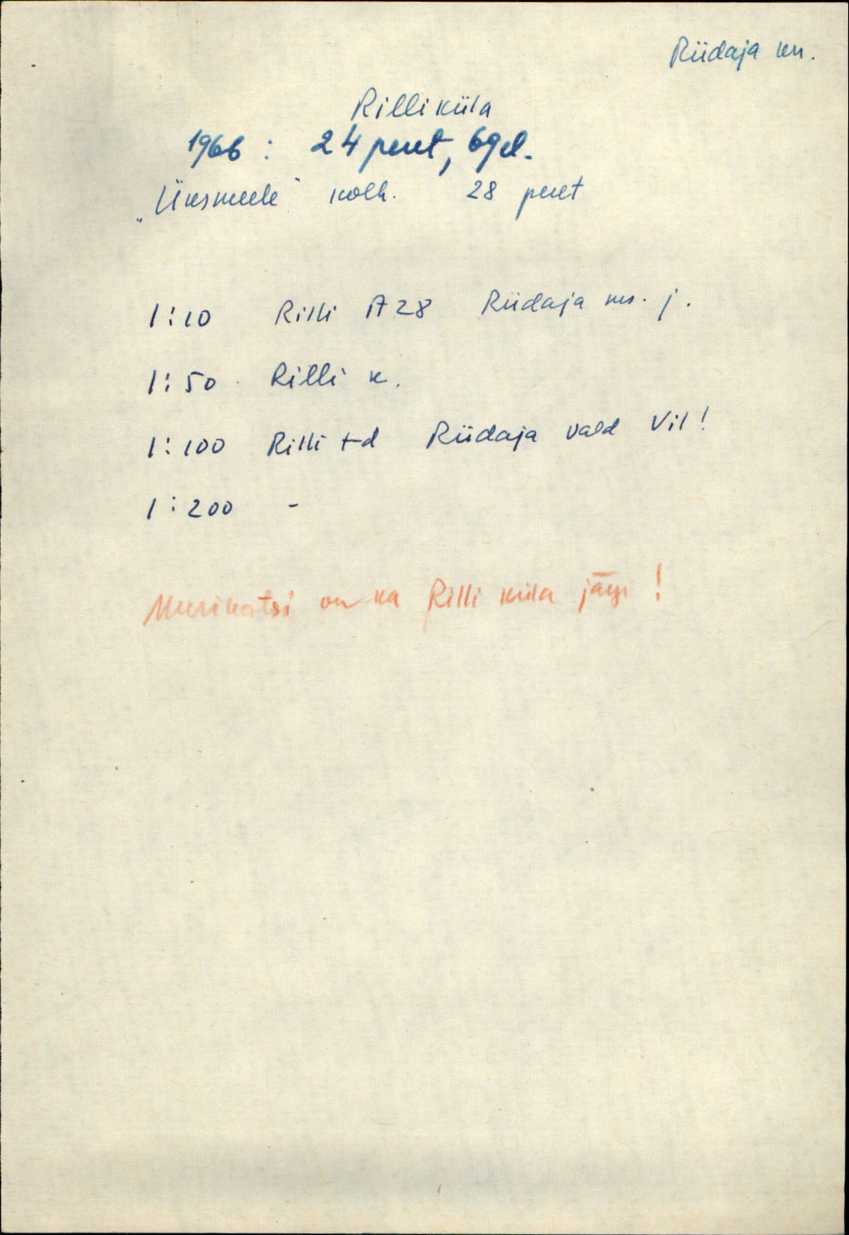 Riidaja kn.
Rilli küla
1966: 24 peret, 69 el.
„Üksmeele" kolh. 28 peret
1:10 Rilli A 28 Riidaja kn. j.
1:50 Rilli k.
1:100 Rilli t-d Riidaja vald Vil!
1:200 -
on ka Rilli küla järgi!